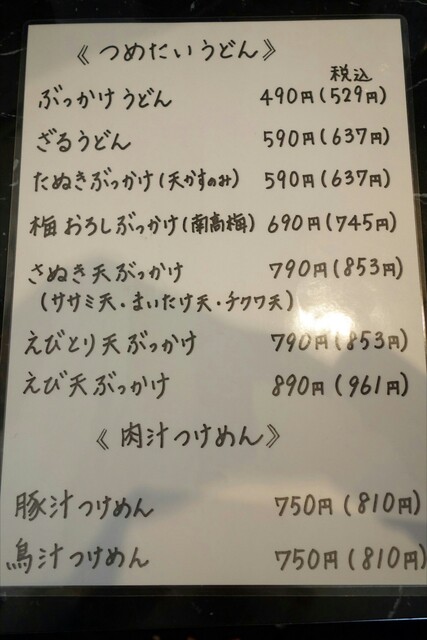 《つめたいうどん》
税込
ぶっかけうどん 490円(529円)
ざるうどん 590円(637円)
たぬきぶっかけ(天かすのみ) 590円(637円)
梅おろしぶっかけ(南高梅) 690円(745円)
さぬき天ぶっかけ 790円(853円)
(ササミ天・まいたけ天・チクワ天)
えびとり天ぶっかけ 790円(853円)
えび天ぶっかけ 890円(961円)
《肉汁つけめん》
豚汁つけめん 750円(810円)
鳥汁つけめん 750円(810円)